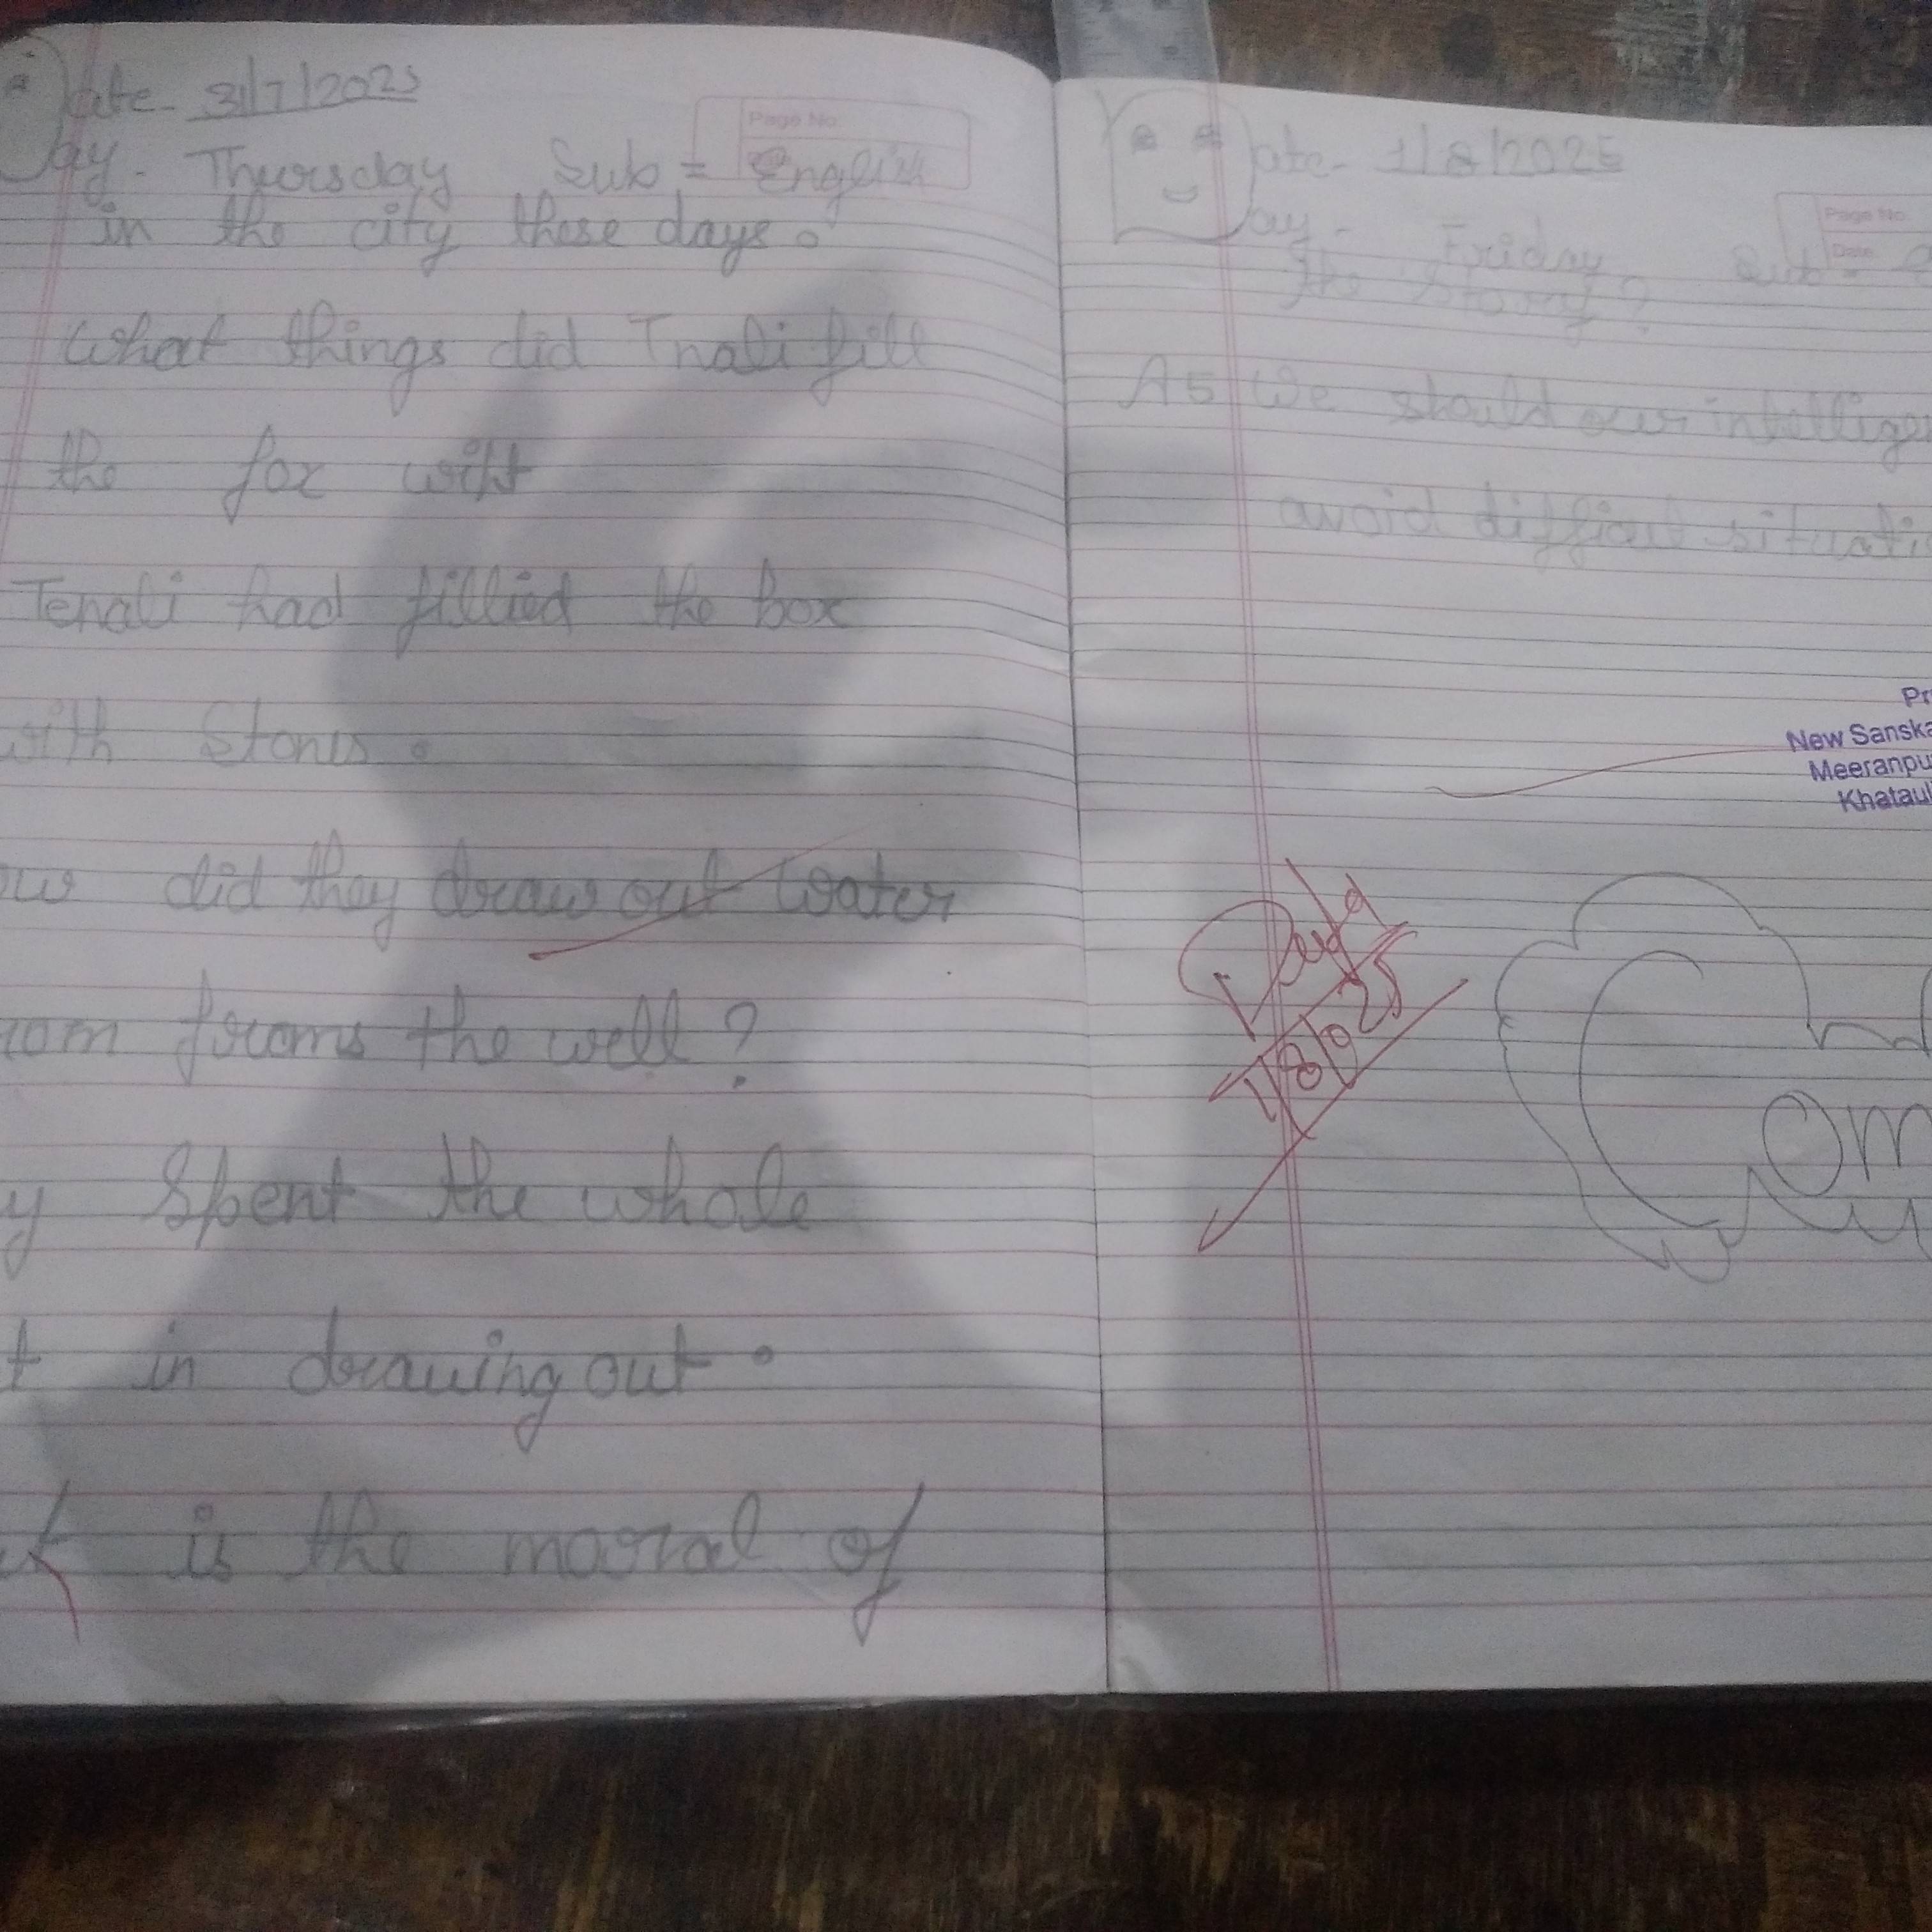 ate- 31/7/2025
Page No
ay. Thursday Sub = English
in the city these days.
What things did Tnali fill
the fox wiht
Tenali had fillied the box
with Stones.
ow did they draw out water
rom froms the well?
y Spent the whole
t in drawing out.
is the moral of
ate- 1/8/2025
Page No.
Date
ay- Friday Sub-
the Story?
A5 We should our intellige
avoid difficut situati
Pr
New Sanska
Meeranpu
Khatauli
1/8/025
Com